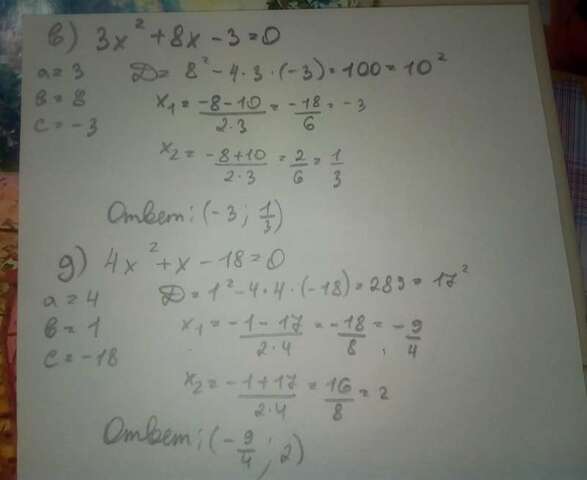 в) 3x² + 8x - 3 = 0
a = 3 D = 8² - 4 · 3 · (-3) = 100 = 10²
в = 8 x₁ = (-8-10)/(2·3) = -18/6 = -3
c = -3
x₂ = (-8+10)/(2·3) = 2/6 = 1/3
Ответ: (-3; 1/3)
g) 4x² + x - 18 = 0
a = 4 D = 1² - 4 · 4 · (-18) = 289 = 17²
в = 1 x₁ = (-1-17)/(2·4) = -18/8 = -9/4
c = -18
x₂ = (-1+17)/(2·4) = 16/8 = 2
Ответ: (-9/4; 2)